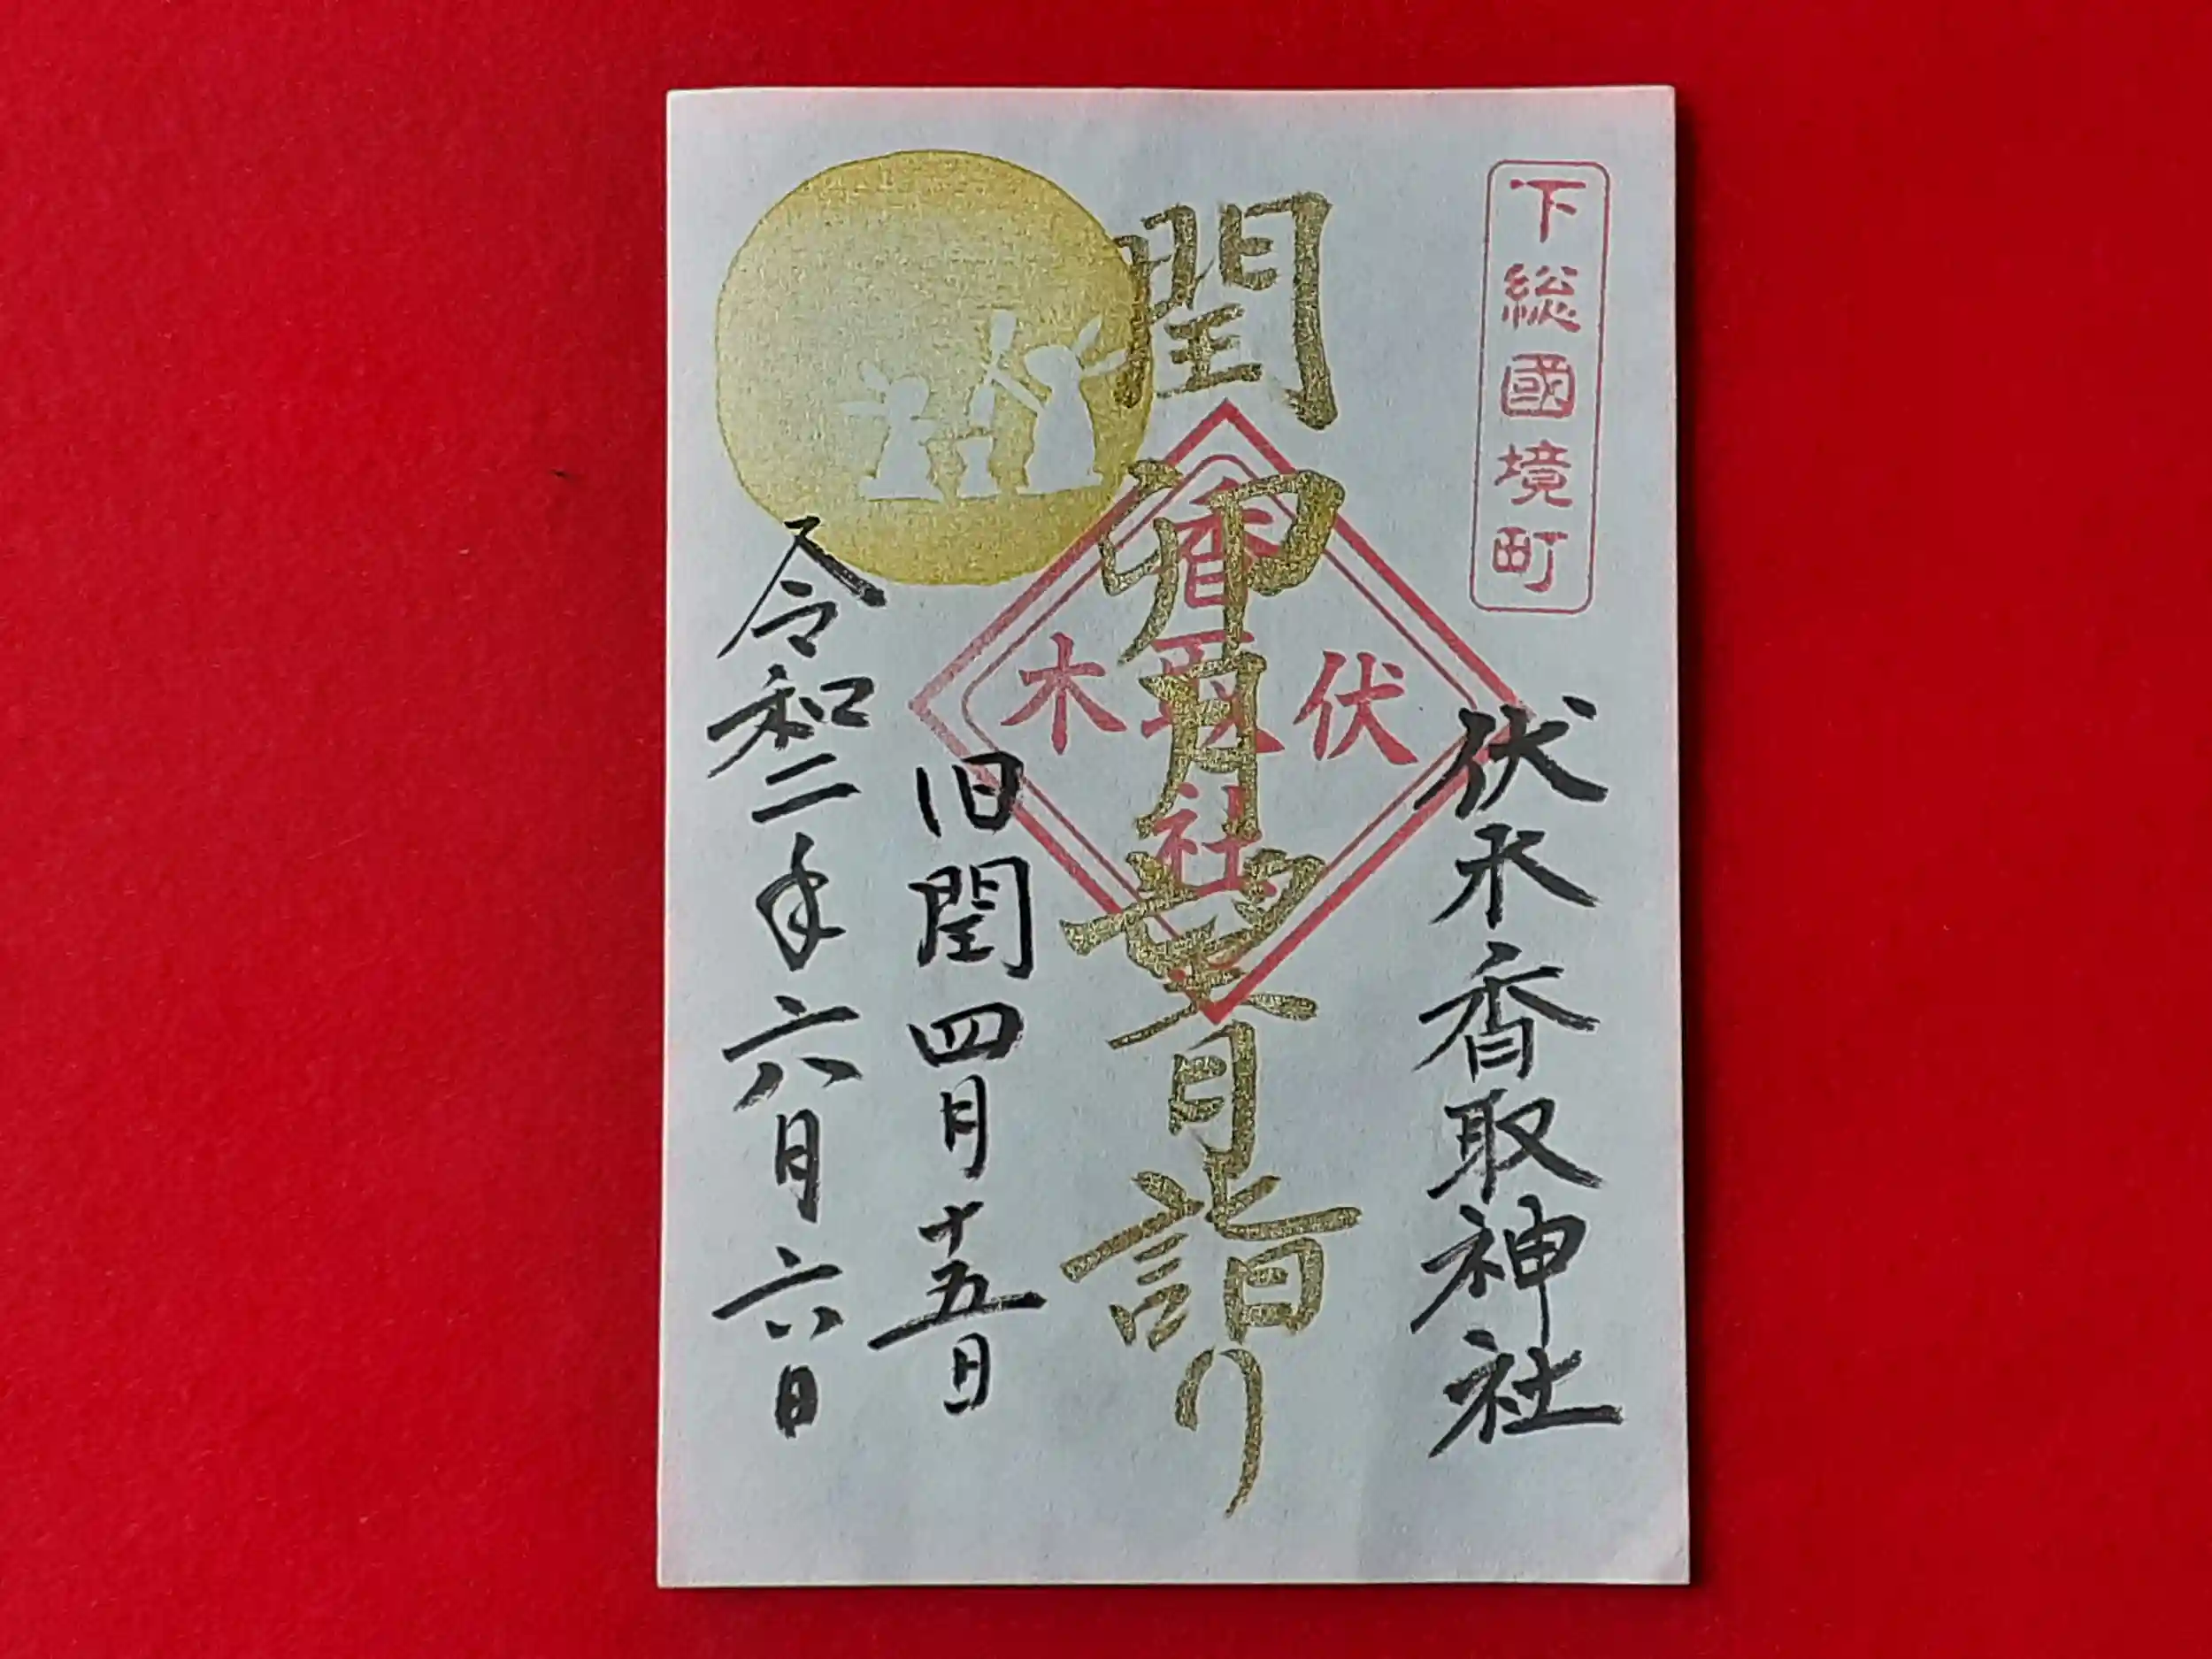 下総國境町
伏木香取神社
閏卯月望月詣り
香取社
伏木
旧閏四月十五日
令和二年六月六日